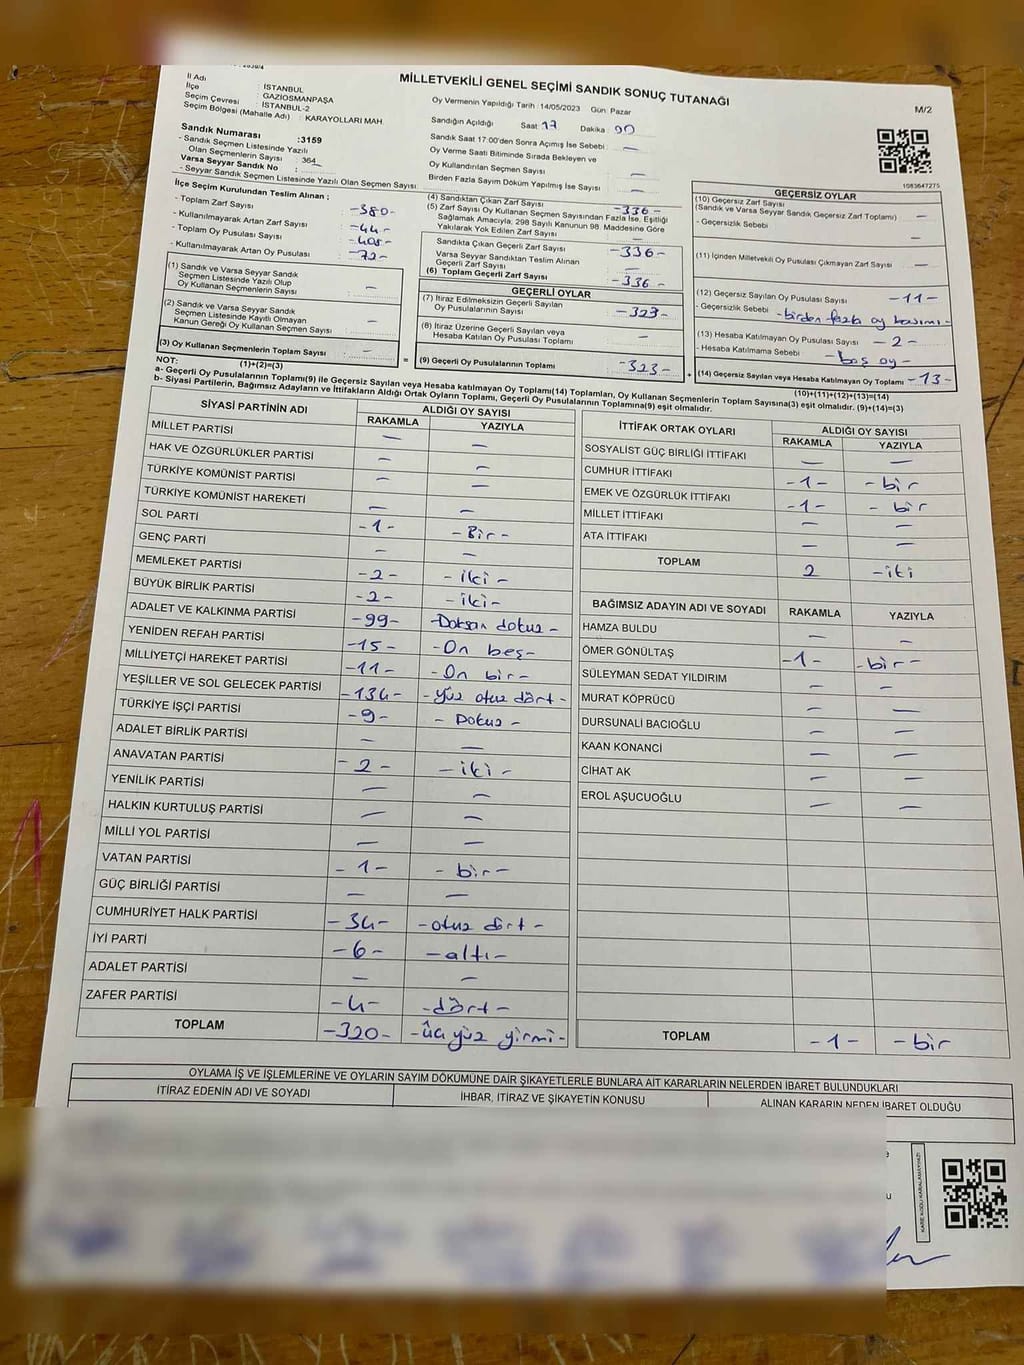 MİLLETVEKİLİ GENEL SEÇİMİ SANDIK SONUÇ TUTANAĞI
M/2
İl Adı : İSTANBUL
İlçe : GAZİOSMANPAŞA
Seçim Çevresi : İSTANBUL-2
Seçim Bölgesi (Mahalle Adı) : KARAYOLLARI MAH.
Sandık Numarası :3159
- Sandık Seçmen Listesinde Yazılı
Olan Seçmenlerin Sayısı : 364
Varsa Seyyar Sandık No :
- Seyyar Sandık Seçmen Listesinde Yazılı Olan Seçmen Sayısı:
Oy Vermenin Yapıldığı Tarih :14/05/2023 Gün: Pazar
Sandığın Açıldığı Saat 17 Dakika 00
Sandık Saat 17:00'den Sonra Açılmış İse Sebebi : —
Oy Verme Saati Bitiminde Sırada Bekleyen ve
Oy Kullandırılan Seçmen Sayısı : —
Birden Fazla Sayım Döküm Yapılmış İse Sayısı : —
1083647275
İlçe Seçim Kurulundan Teslim Alınan ;
- Toplam Zarf Sayısı : -380-
- Kullanılmayarak Artan Zarf Sayısı : -44-
- Toplam Oy Pusulası Sayısı : -408-
- Kullanılmayarak Artan Oy Pusulası : -72-
(1) Sandık ve Varsa Seyyar Sandık
Seçmen Listesinde Yazılı Olup
Oy Kullanan Seçmenlerin Sayısı : —
(2) Sandık ve Varsa Seyyar Sandık
Seçmen Listesinde Kayıtlı Olmayan
Kanun Gereği Oy Kullanan Seçmen Sayısı : —
(3) Oy Kullanan Seçmenlerin Toplam Sayısı : —
(1)+(2)=(3)
(4) Sandıktan Çıkan Zarf Sayısı : -336-
(5) Zarf Sayısı Oy Kullanan Seçmen Sayısından Fazla İse, Eşitliği
Sağlamak Amacıyla, 298 Sayılı Kanunun 98. Maddesine Göre
Yakılarak Yok Edilen Zarf Sayısı : —
Sandıkta Çıkan Geçerli Zarf Sayısı : -336-
Varsa Seyyar Sandıktan Teslim Alınan
Geçerli Zarf Sayısı : —
(6) Toplam Geçerli Zarf Sayısı : -336-
GEÇERLİ OYLAR
(7) İtiraz Edilmeksizin Geçerli Sayılan
Oy Pusulalarının Sayısı : -323-
(8) İtiraz Üzerine Geçerli Sayılan veya
Hesaba Katılan Oy Pusulası Toplamı : —
= (9) Geçerli Oy Pusulalarının Toplamı : -323- +
GEÇERSİZ OYLAR
(10) Geçersiz Zarf Sayısı
(Sandık ve Varsa Seyyar Sandık Geçersiz Zarf Toplamı) —
- Geçersizlik Sebebi : —
(11) İçinden Milletvekili Oy Pusulası Çıkmayan Zarf Sayısı : —
(12) Geçersiz Sayılan Oy Pusulası Sayısı : -11-
- Geçersizlik Sebebi : -birden fazla oy basımı-
(13) Hesaba Katılmayan Oy Pusulası Sayısı : -2-
- Hesaba Katılmama Sebebi : -boş oy-
(14) Geçersiz Sayılan veya Hesaba Katılmayan Oy Toplamı : -13-
(10)+(11)+(12)+(13)=(14)
NOT:
a- Geçerli Oy Pusulalarının Toplamı(9) ile Geçersiz Sayılan veya Hesaba katılmayan Oy Toplamı(14) Toplamları, Oy Kullanan Seçmenlerin Toplam Sayısına(3) eşit olmalıdır. (9)+(14)=(3)
b- Siyasi Partilerin, Bağımsız Adayların ve İttifakların Aldığı Ortak Oyların Toplamı, Geçerli Oy Pusulalarının Toplamına(9) eşit olmalıdır.
SİYASİ PARTİNİN ADI ALDIĞI OY SAYISI
RAKAMLA YAZIYLA
MİLLET PARTİSİ — —
HAK VE ÖZGÜRLÜKLER PARTİSİ — —
TÜRKİYE KOMÜNİST PARTİSİ — —
TÜRKİYE KOMÜNİST HAREKETİ — —
SOL PARTİ -1- -Bir-
GENÇ PARTİ — —
MEMLEKET PARTİSİ -2- -iki-
BÜYÜK BİRLİK PARTİSİ -2- -iki-
ADALET VE KALKINMA PARTİSİ -99- -Doksan dokuz-
YENİDEN REFAH PARTİSİ -15- -On beş-
MİLLİYETÇİ HAREKET PARTİSİ -11- -On bir-
YEŞİLLER VE SOL GELECEK PARTİSİ -134- -yüz otuz dört-
TÜRKİYE İŞÇİ PARTİSİ -9- -Dokuz-
ADALET BİRLİK PARTİSİ — —
ANAVATAN PARTİSİ -2- -iki-
YENİLİK PARTİSİ — —
HALKIN KURTULUŞ PARTİSİ — —
MİLLİ YOL PARTİSİ — —
VATAN PARTİSİ -1- -bir-
GÜÇ BİRLİĞİ PARTİSİ — —
CUMHURİYET HALK PARTİSİ -34- -otuz dört-
İYİ PARTİ -6- -altı-
ADALET PARTİSİ — —
ZAFER PARTİSİ -4- -dört-
TOPLAM -320- -üç yüz yirmi-
İTTİFAK ORTAK OYLARI ALDIĞI OY SAYISI
RAKAMLA YAZIYLA
SOSYALİST GÜÇ BİRLİĞİ İTTİFAKI — —
CUMHUR İTTİFAKI -1- -bir
EMEK VE ÖZGÜRLÜK İTTİFAKI -1- -bir
MİLLET İTTİFAKI — —
ATA İTTİFAKI — —
TOPLAM 2 -iki
BAĞIMSIZ ADAYIN ADI VE SOYADI RAKAMLA YAZIYLA
HAMZA BULDU — —
ÖMER GÖNÜLTAŞ -1- -bir-
SÜLEYMAN SEDAT YILDIRIM — —
MURAT KÖPRÜCÜ — —
DURSUNALİ BACIOĞLU — —
KAAN KONANCİ — —
CİHAT AK — —
EROL AŞUCUOĞLU — —
TOPLAM -1- -bir
OYLAMA İŞ VE İŞLEMLERİNE VE OYLARIN SAYIM DÖKÜMÜNE DAİR ŞİKAYETLERLE BUNLARA AİT KARARLARIN NELERDEN İBARET BULUNDUKLARI
İTİRAZ EDENİN ADI VE SOYADI İHBAR, İTİRAZ VE ŞİKAYETİN KONUSU ALINAN KARARIN NEDEN İBARET OLDUĞU
KARE KODU KARALAMAYINIZ!